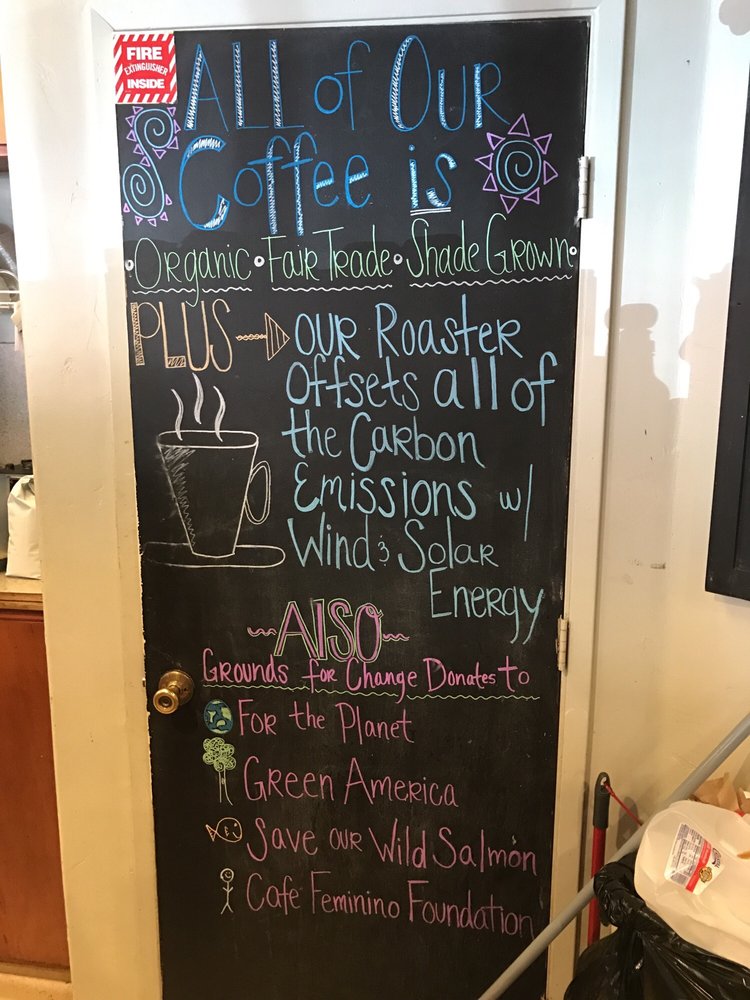 FIRE
EXTINGUISHER
INSIDE
ALL of OUR
Coffee is
Organic • Fair Trade • Shade Grown
PLUS
OUR Roaster
Offsets all of
the Carbon
Emissions w/
Wind & Solar
Energy
AlSO
Grounds for Change Donates to
For the Planet
Green America
Save our Wild Salmon
Cafe Feminino Foundation